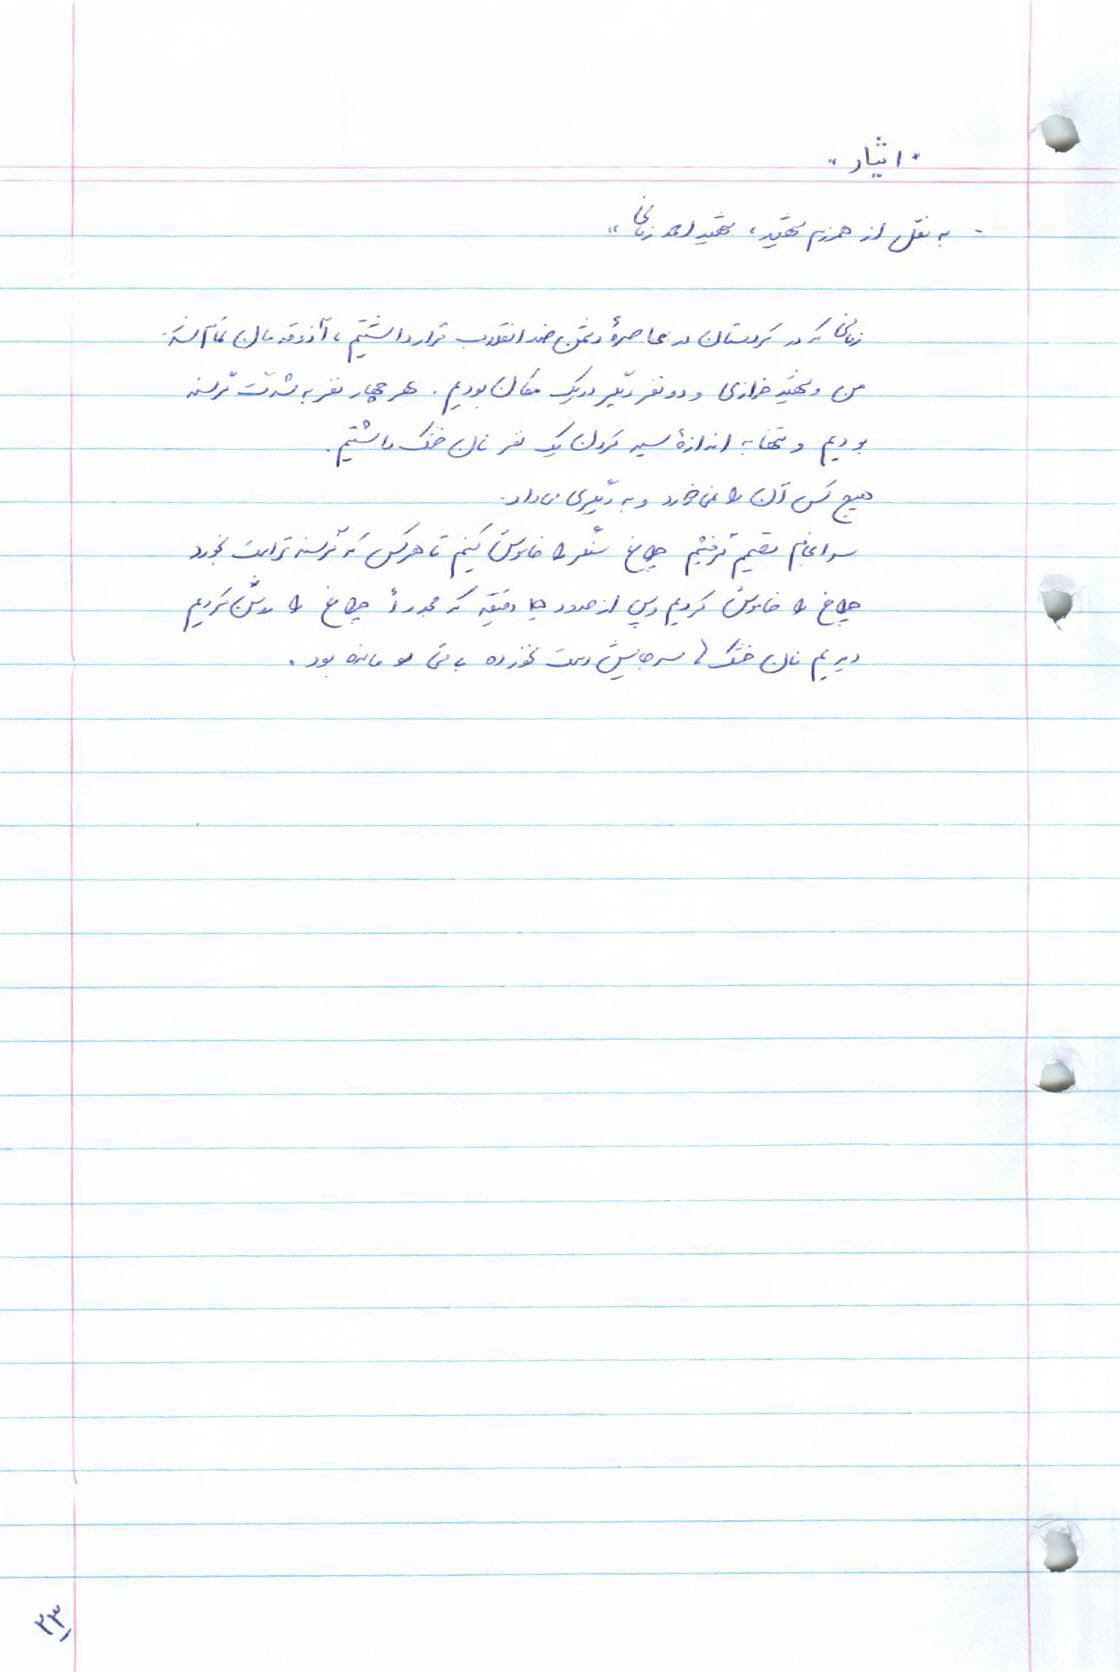 "ایثار"
- به نقل از همرزم شهید، شهید احمد زمانی"
زمانی که در کردستان در محاصرهٔ دشمن ضد انقلاب قرار داشتیم، آذوقه مان تمام شد.
من و شهید خرازی و دو نفر دیگر در یک مکان بودیم. هر چهار نفر به شدت گرسنه
بودیم و تنها به اندازهٔ سیر کردن یک نفر نان خشک داشتیم.
هیچ کس آن را نمی خورد و به دیگری می داد.
سرانجام تصمیم گرفتیم چراغ سنگر را خاموش کنیم تا هر کس که گرسنه تر است بخورد
چراغ را خاموش کردیم و پس از حدود دقیقه که مجدداً چراغ را روشن کردیم
دیدیم نان خشک ها سر جایش دست نخورده باقی مانده بود.
۲۳